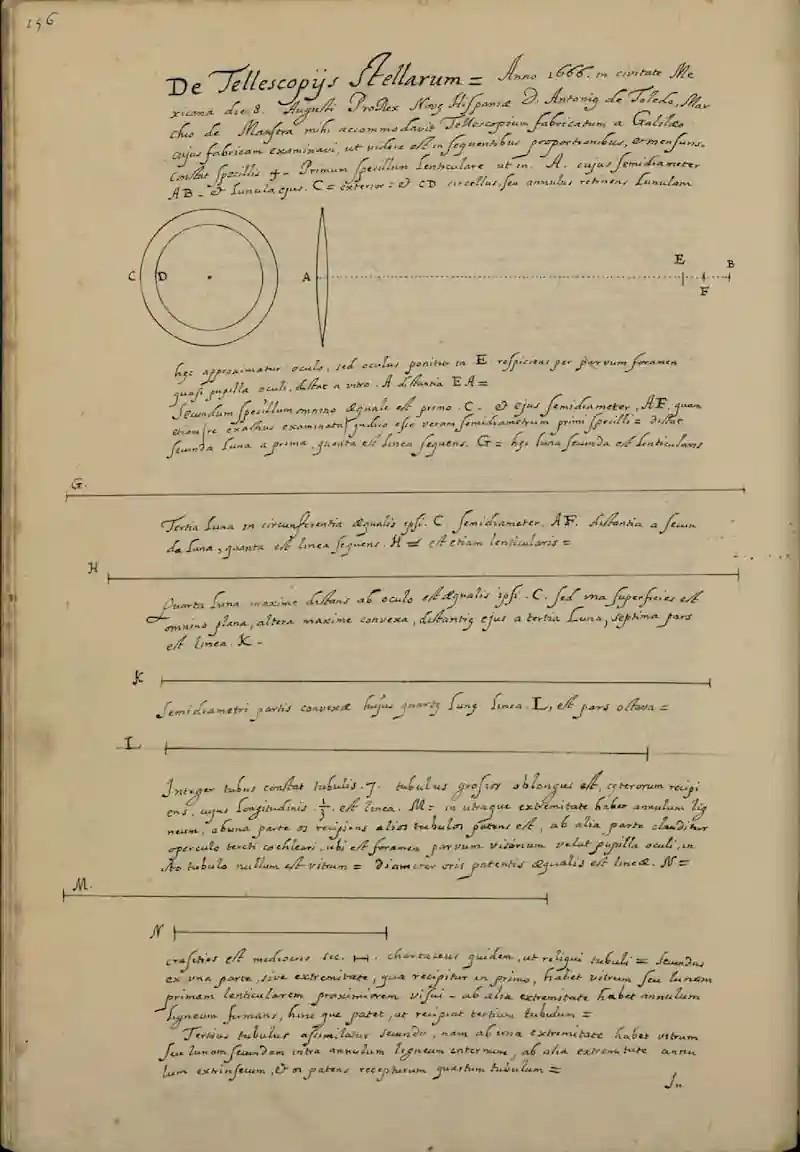 156
De Tellescopijs Stellarum = Anno 1666. in civitate Me
xicana die 8. Augusti ProRex Novę Hispaniæ D. Antonig de Toledo, Mar
chio de Mansera mihi accommodavit Tellescopium fabricatum a Galilæo
cujus fabricam examinavi, ut videre est in sequentibus proportionibus, et mensuris.
Constat specillis 4. Primum specillum Lenticulare ut in. A. cujus semidiameter
AB - & Lunula ejus. C = exterior = & CD circellus, seu annulus retinens Lunulam
C D A E F B
hęc approximatur oculo, sed oculus ponitur in E respiciens per parvum foramen
quasi pupilla oculi, distat a vitro. A distantia EA =
Secundum specillum omnino æquale est primo. C - & ejus semidiameter, AF, quam
etiam re exactius examinata judico esse veram semidiametrum primi specilli = distat
secunda Luna a prima, quanta est linea sequens. G = hęc luna secunda est Lenticularis
G.
Tertia Luna in circunferentia æqualis ipsi. C semidiameter, AF. distantia a secun
da Luna, quanta est linea sequens. H = est etiam lenticularis =
H
Quarta Luna maxime distans ab oculo est æqualis ipsi. C. sed una superficies est
omnino plana, altera maxime convexa, distantię ejus a tertia Luna, septima pars
est linea. K -
K
Semidiametri partis convexæ hujus quartę Lunę linea. L, est pars octava =
L
Integer tubus constat tubulis. 7. tubulus grosior oblongus est, cęterorum recipi
ens, cujus longitudinis. 1/3. est linea. M = in utraque extremitate habet annulum lig
neum, ab una parte os recipiens alios tubulos patens est, ab alia parte clauditur
operculo torcti cochleari, ubi est foramen parvum visorium velut pupilla oculi, in
isto tubulo nullum est vitrum = Diameter oris patentis æqualis est lineæ. N =
M.
N
crasities est mediocris sic. chartaceus quidem, ut reliqui tubuli = Secundus
ex una parte, sive extremitate, qua recipitur in primo, habet vitrum seu lunam
primam lenticularem proximiorem visui - ab alia extremitate habet annulum
ligneum firmans, hinc que patet, ut recipiat tertium tubulum =
Tertius tubulus assimilatur secundo, nam ab una extremitate habet vitrum
seu lunam secundam intra annulum ligneum internum, ab alia extremitate annu
lum extrinsecum, & os patens recepturum quartum tubulum =
In